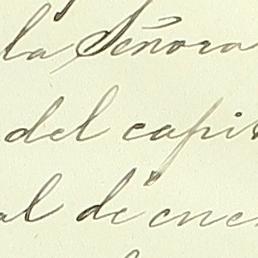 la Señora
del capi
al de ene